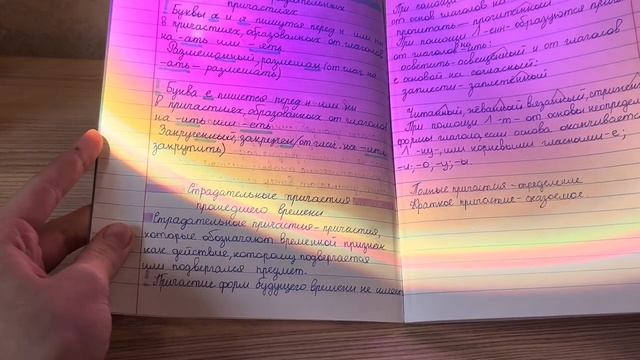 причастиях
Буквы а и я пишутся перед н или нн
в причастиях, образованных от глаголов
на -ать или -ять
Размешанный, размешан (от глаг. на
-ать - размешать)
Буква е пишется перед н или нн
в причастиях, образованных от глагола
на -ить или -еть.
Закрученный, закручен (от глаг. на -ить -
закрутить)
Страдательные причастия
прошедшего времени
Страдательные причастия - причастия,
которые обозначают временной признак
как действие, которому подвергается
или подвергался предмет.
Причастие форм будущего времени не имеет
При помощи
от основ глаголов на
прочитать - прочитанный
При помощи -енн- образуются прич
от глаголов на -ить:
осветить - освещённый и от глаголов
с основой на согласный:
заплести - заплетённый
Читанный, жёванный, вязанный,
При помощи -т- от основы неопреде
формы глагола, если основа оканчивается
-ну-, или корневыми гласными -е;
-и; -о, -у; -ы.
Полные причастия - определение
Краткое причастие - сказуемое